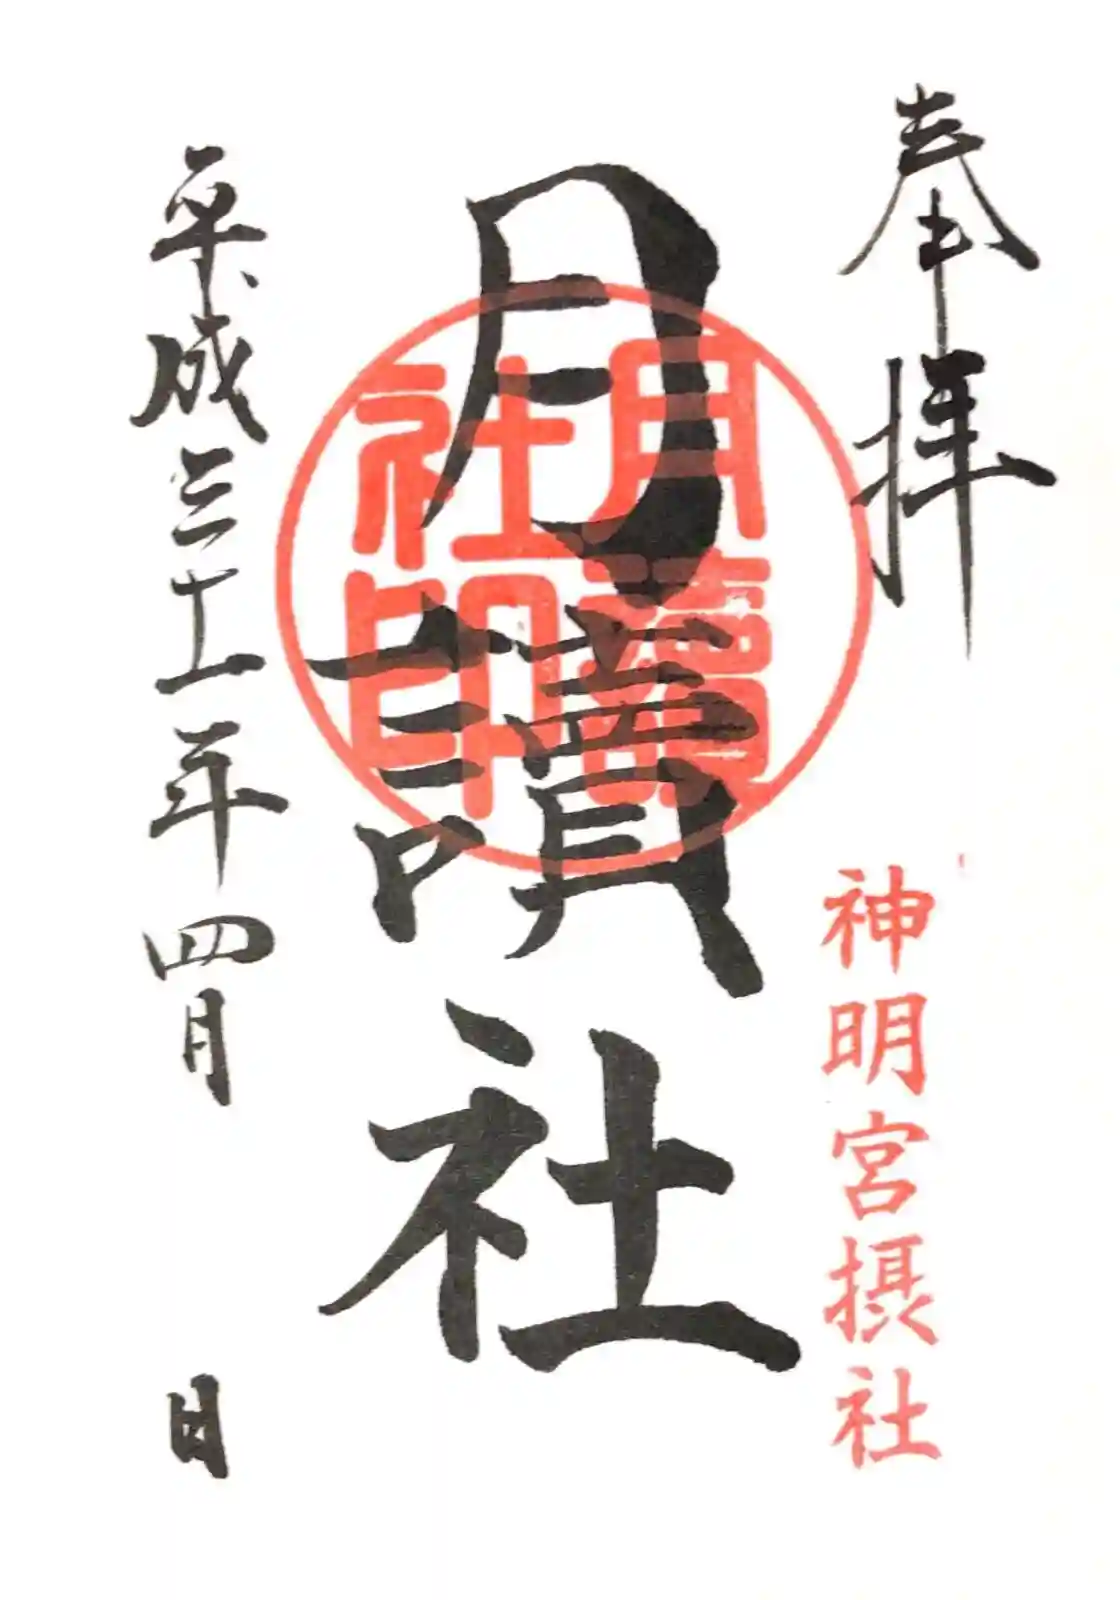 奉拝
神明宮摂社
月讀社
月讀
社印
平成三十一年四月 日